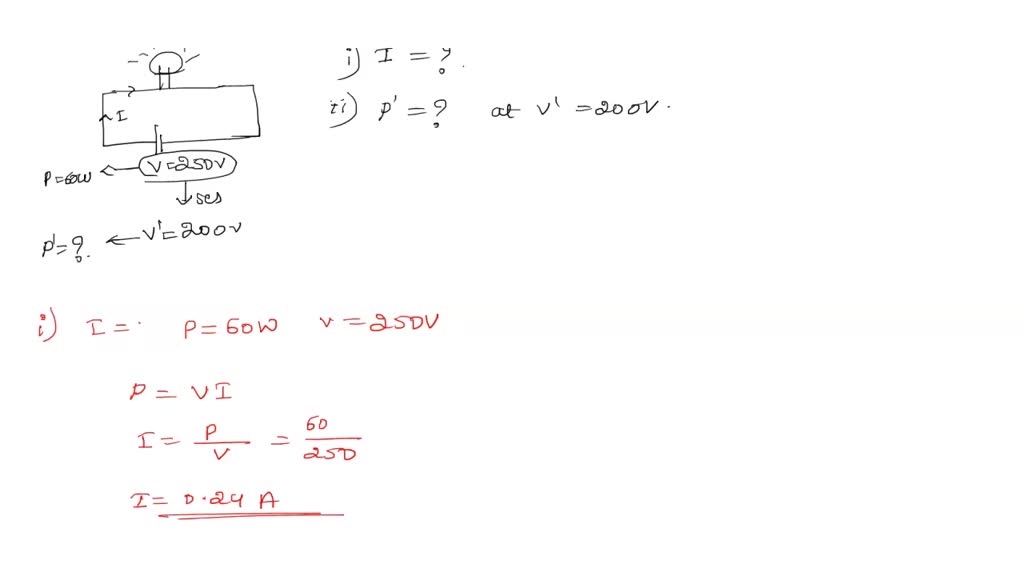 i) I = ?.
ii) P' = ? at V' = 200V.
I
V=250V
P=60W
SCS
P'=?. ← V'=200V
i) I = . P = 60W V = 250V
P = VI
I = P/V = 60/250
I = 0.24 A